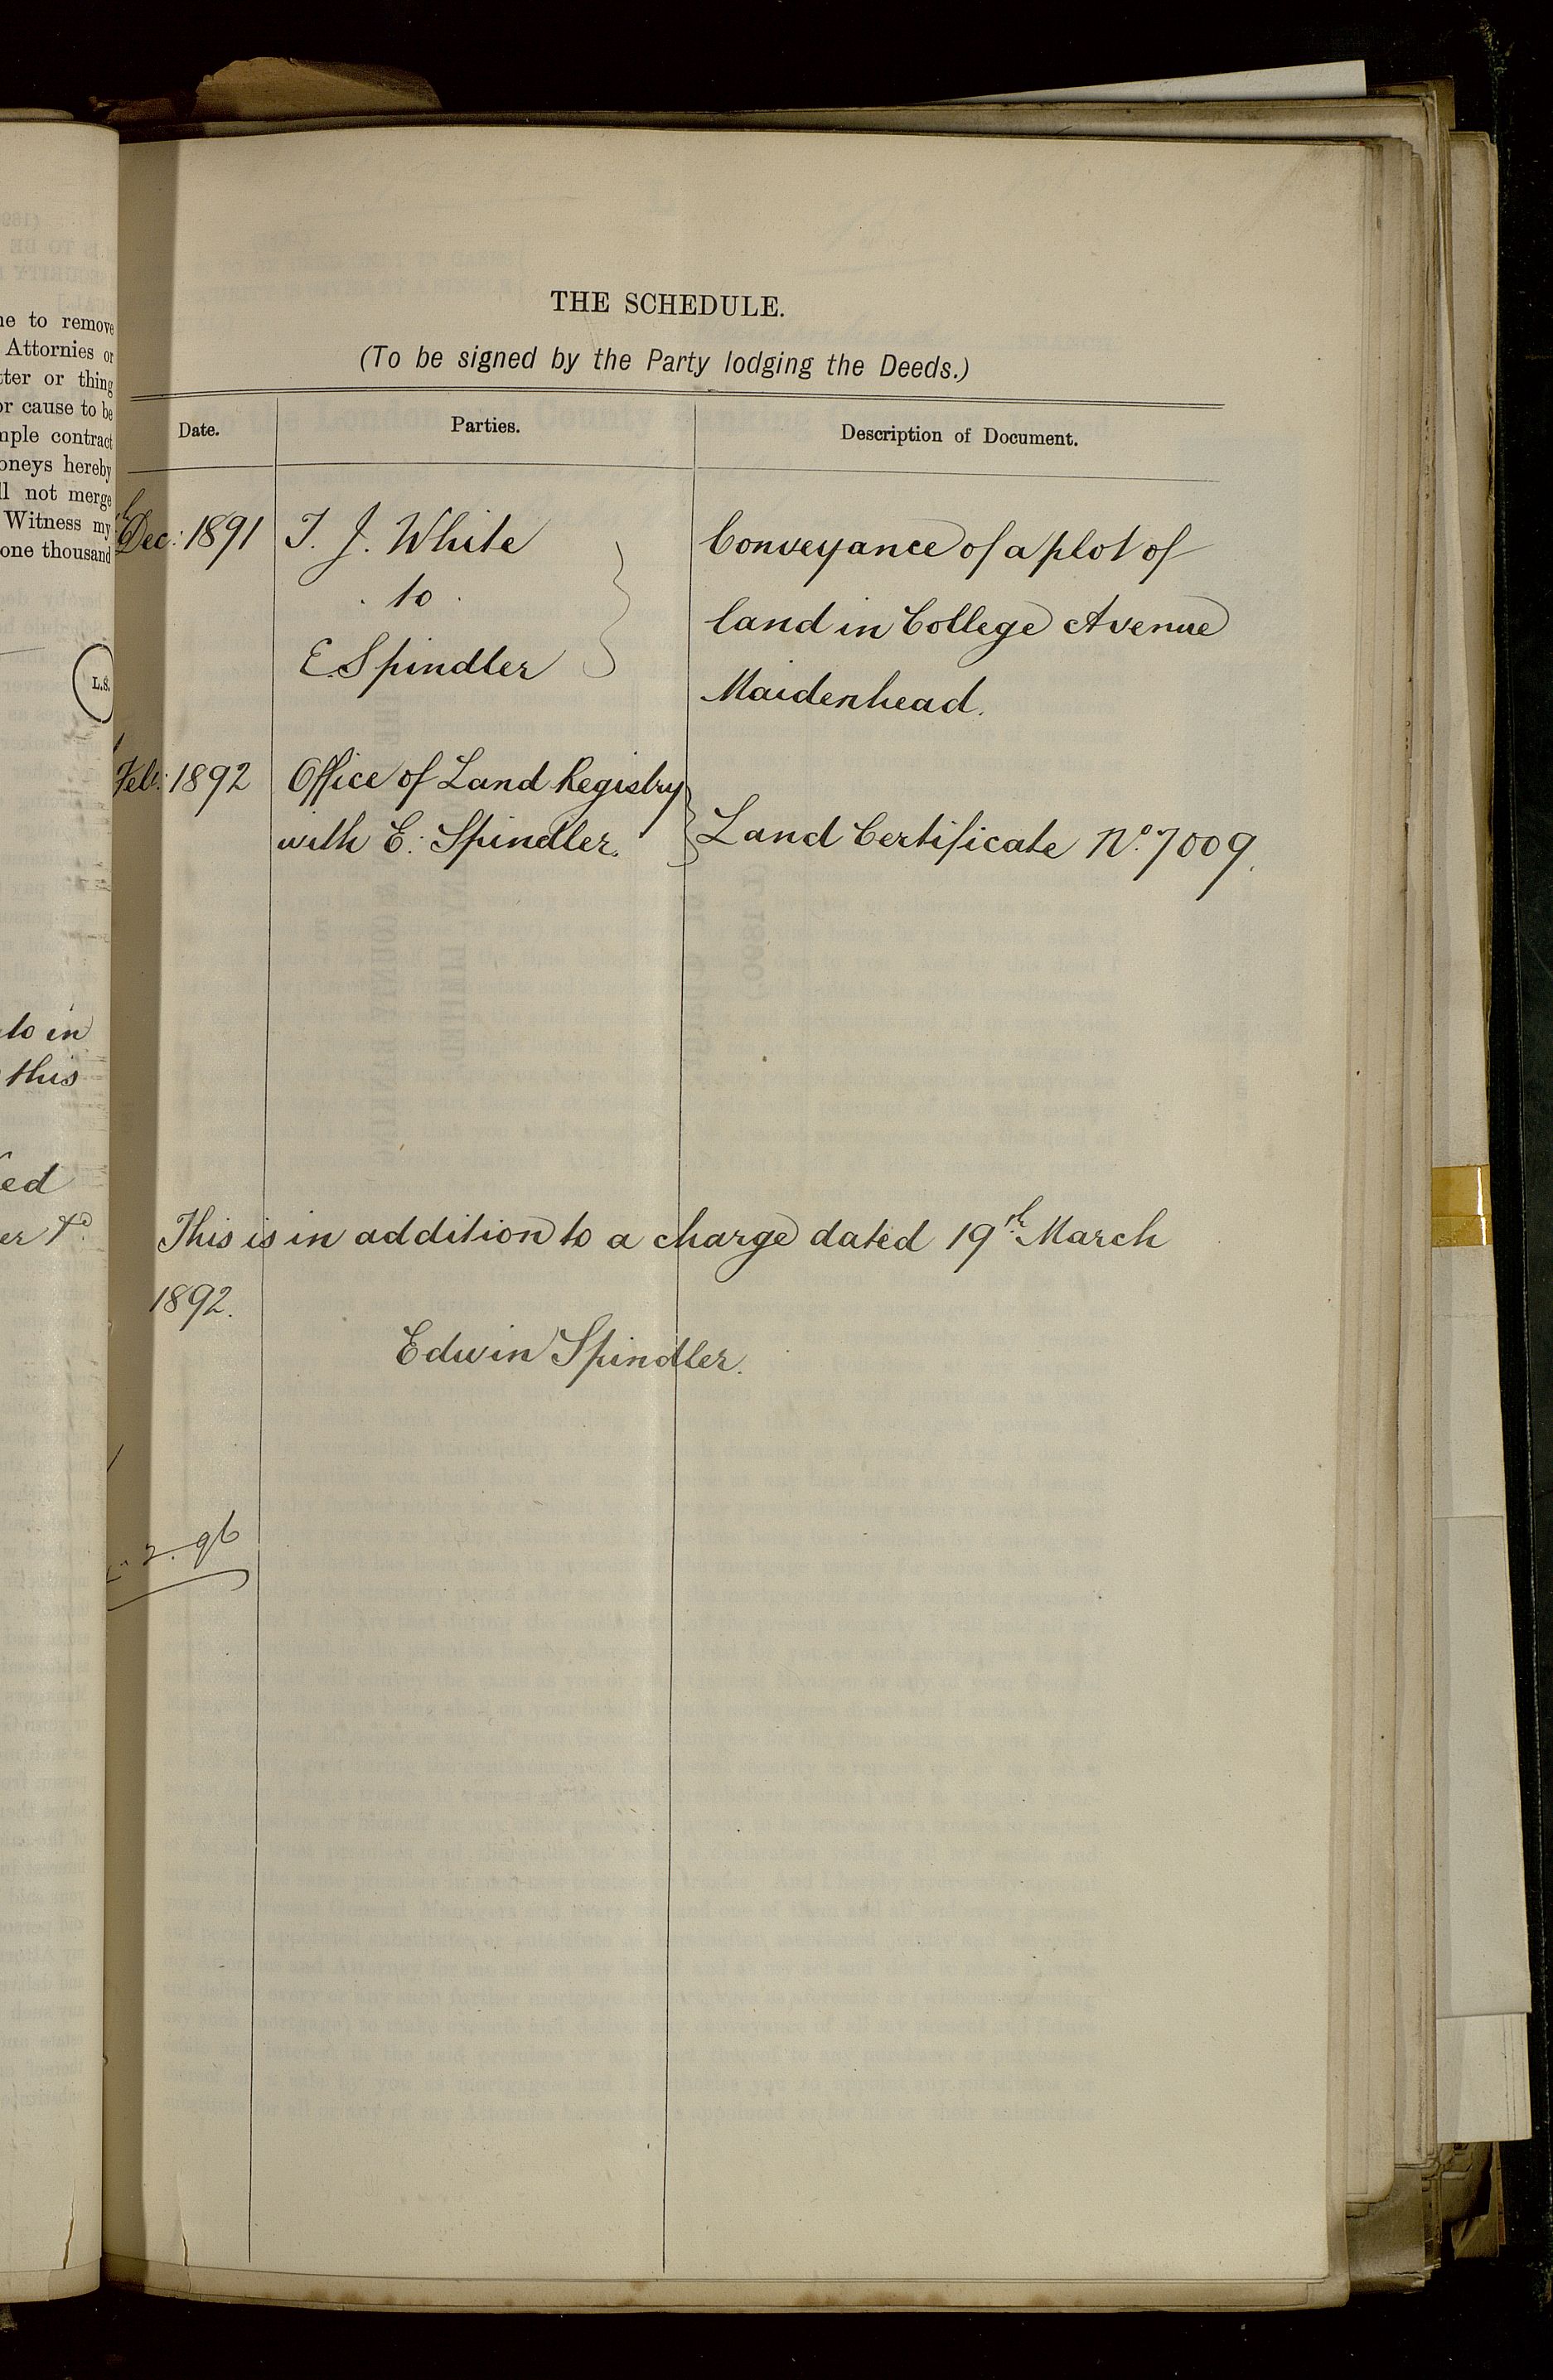 THE SCHEDULE.
(To be signed by the Party lodging the Deeds.)
Date. Parties. Description of Document.
Dec: 1891 T. J. White Conveyance of a plot of
to land in College Avenue
E. Spindler Maidenhead.
Feb: 1892 Office of Land Registry
with E. Spindler. Land Certificate No. 7009.
This is in addition to a charge dated 19th March
1892.
Edwin Spindler.
2. 96
to remove
Attornies or
or thing
or cause to be
contract
hereby
not merge
Witness my
one thousand
L.S.
to in
this